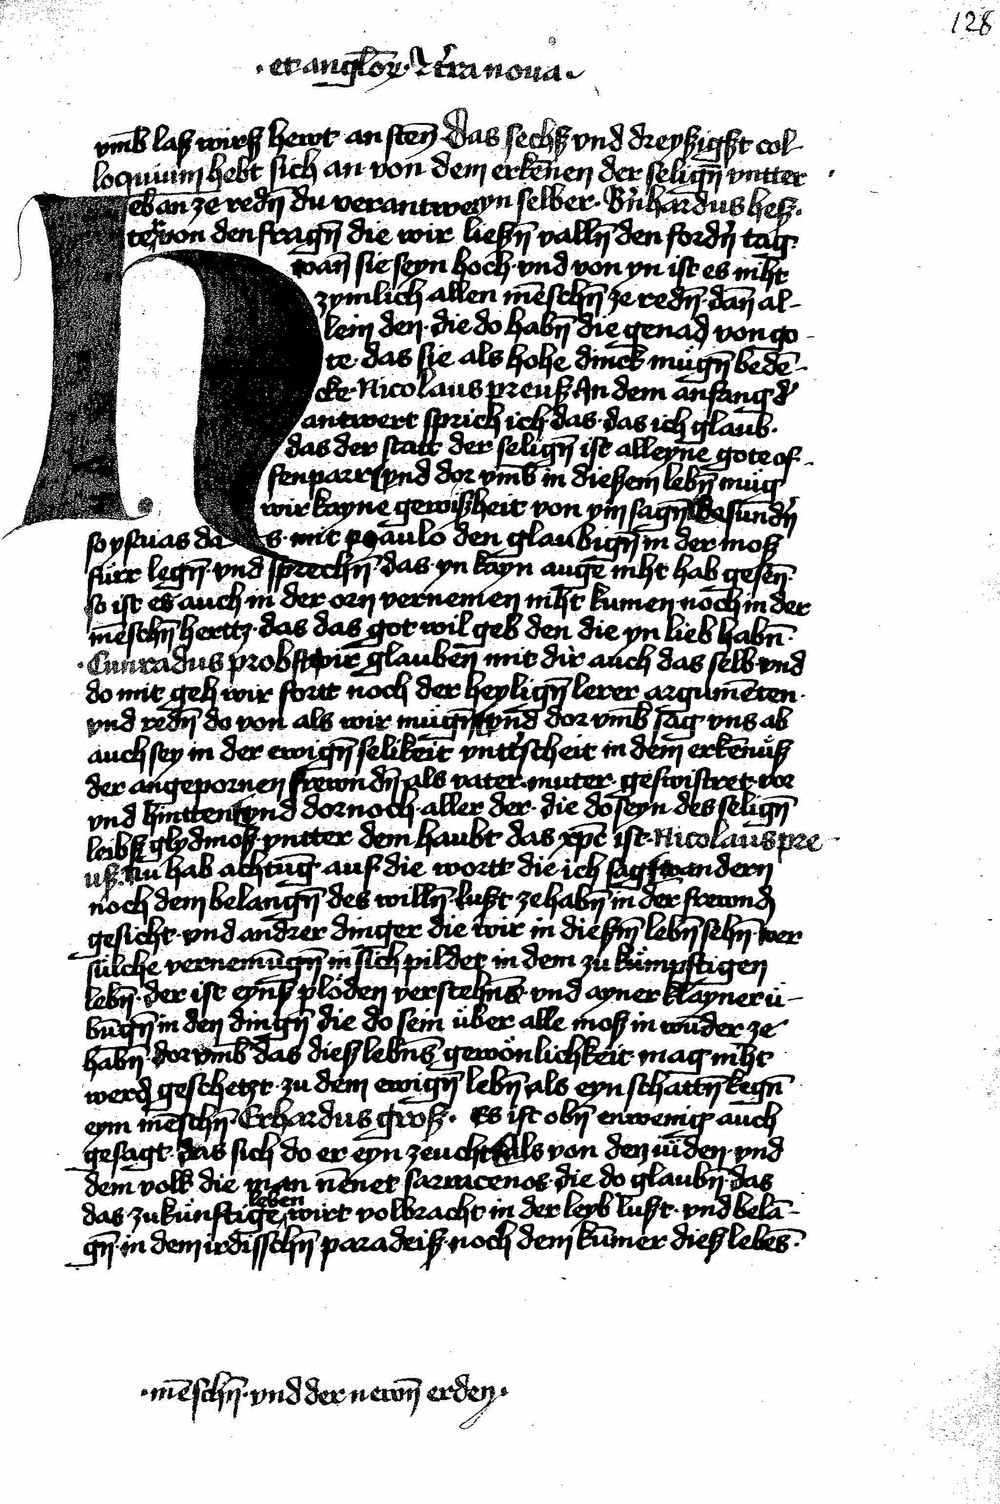 128
· et angl̄oꝝ · ⁊ t̉ra noua ·
vm̄b laß wirß hewt an sten̄ Das sechß vnd dreyßigßt col-
loquium hebt sich an von dem erkēnen der selign̄ vntter
eb an ze redn̄ du verantwe yn selber · B̉nhardus heß ·
te von den fragn̄ die wir ließn̄ valln̄ den fordn̉ tag
wan̄ sie seyn hoch · vnd von yn ist es niht
zymlich allen mēschn̄ ze redn̄ · dan̄ al-
lein den · die do habn̄ die genad von go-
te · das sie als hohe dinck mügn̄ bedē-
cke · Nicolaus preuß An dem anfang d̉
antwert sprich ich das · das ich glaub ·
das der statt der selign̄ ist alleyne gote of-
fenparr vnd dor vmb in dießem lebn̄ müg
wir kayne gewißheit von ym sagn̄ Besundn̉
so ysaias da s · mit paulo den glaubign̄ in der moß
fürr legn̄ · vnd sprechn̄ · das yn kayn auge niht hab gesen̄ ·
so ist es auch in der orn vernemen niht kumen noch in der
mēschn̄ herttz · das das got wil geb den die yn lieb habn̄ ·
· Cunradus probst wir glauben̄ mit dir auch das selb vnd
do mit geh wir fortt noch der heylign̄ lerer argumēten ·
vnd redn̄ do von als wir mügn̄ vnd dor vmb sag vns ab
auch sey in der ewign̄ selikeit vntt̉scheit in dem erkēnüß
der angepornen frewndn̄ als vater · muter · geswistret · vor
vnd hintten vnd dornoch · aller der · die do seyn des selign̄
leibß glydmoß · vntter dem haubt das xp̄c ist · Nicolaus pre-
uß · Nu hab achtūg · auf die wortt die ich sag wandern
noch dem belangn̄ des willn̄ · lußt ze habn̄ in der frewnd
gesicht · vnd andrer dinger die wir in dießm̄ lebn̄ sehn̄ · wer
sülche vernemūgn̄ in sich pildet in dem zu kümpftigen
lebn̄ · der ist eynß plöden verstehns · vnd ayner klayner ü-
būgn̄ in den dingn̄ die do sein über alle moß in wūder ze
habn̄ · dor vmb das dieß lebn̄s gewönlichkeit mag niht
werd geschetzt · zu dem ewign̄ lebn̄ als eyn schattn̄ kegn̄
eym mēschn̄ · Erhardus groß · Es ist obn̄ enwenig auch
gesagt · das sich do er eyn zeucht Als von den iüden · vnd
dem volk die man nēnet sarracenos · die do glaubn̄ · das
leben
das zukünftige wirt volbracht in der leyb lußt · vnd belā-
gn̄ · in dem irdisschn̄ paradeiß · noch dem kūmer dieß lebēs ·
· mēschn̄ · vnd der newn̄ erden ·